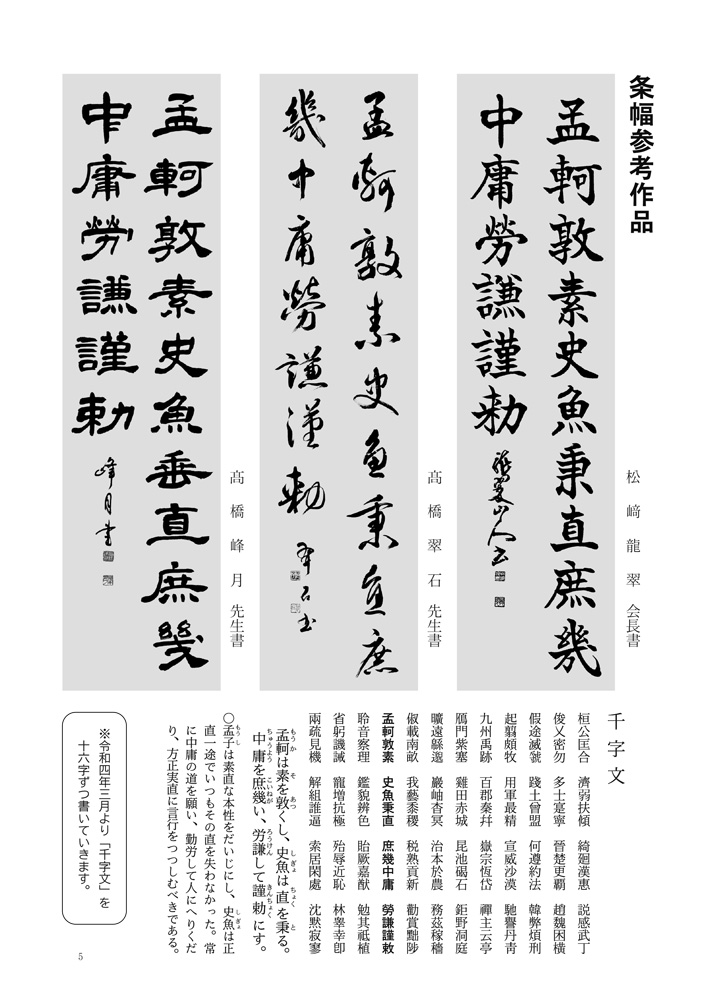 条幅参考作品
孟軻敦素史魚秉直庶幾
中庸勞謙謹勅
松﨑龍翠 会長書
孟軻敦素史魚秉直庶
幾中庸勞謙謹勅
翠石書
髙橋翠石 先生書
孟軻敦素史魚秉直庶幾
中庸勞謙謹勅
峰月書
髙橋峰月 先生書
千字文
桓公匡合 濟弱扶傾 綺廻漢惠 説感武丁
俊乂密勿 多士寔寧 晉楚更覇 趙魏困横
假途滅虢 踐土曾盟 何遵約法 韓弊煩刑
起翦頗牧 用軍最精 宣威沙漠 馳譽丹靑
九州禹跡 百郡秦幷 嶽宗恆岱 禪主云亭
鴈門紫塞 雞田赤城 昆池碣石 鉅野洞庭
曠遠緜邈 巖岫杳冥 治本於農 務茲稼穡
俶載南畝 我藝黍稷 税熟貢新 勸賞黜陟
孟軻敦素 史魚秉直 庶幾中庸 勞謙謹敕
聆音察理 鑑貌辨色 貽厥嘉猷 勉其祗植
省躬譏誡 寵增抗極 殆辱近恥 林皋幸卽
兩疏見機 解組誰逼 索居閑處 沈黙寂寥
孟軻は素を敦くし、史魚は直を秉る。
中庸を庶幾い、労謙して謹勅にす。
○孟子は素直な本性をだいじにし、史魚は正
直一途でいつもその直を失わなかった。常
に中庸の道を願い、勤労して人にへりくだ
り、方正実直に言行をつつしむべきである。
※令和四年三月より「千字文」を
十六字ずつ書いていきます。
5